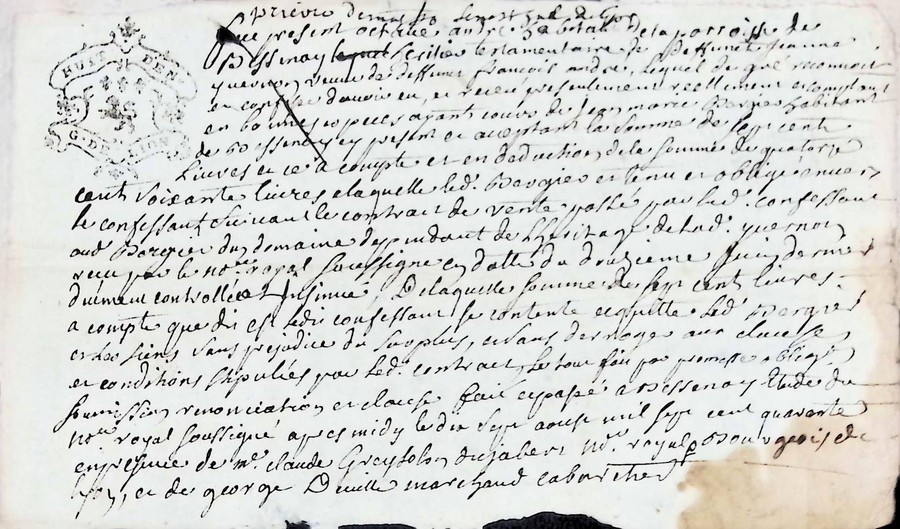 HUIT DEN
G. DE LION
present octave andré habitant de la parroisse de
Bessenay heritier testamentaire de deffunte Jeanne
quernon veuve de deffunt françois andré, lequel de gré reconnoit
et confesse d'avoir eu, et receu presentement reellement et comptant
en bonnes especes ayant cours de Jean marie Bergier habitant
de Bessenay present et acceptant la somme de sept cent
Livres et ce a compte et en deduction de la somme de quatorze
cent soixante livres a laquelle led. Bergier est tenu et obligé envers
le confessant suivant le contrat de vente passé par led. confessant
aud. Bergier du domaine dependant de l'heritage de lad. quernon
receu par le no.re royal soussigné en datte du douzieme Juin dernier
duement controllé et Insinué, De laquelle somme de sept cent livres
a compte que dit est ledit confessant se contente et quitte led. Bergier
et les siens sans prejudice du surplus, et sans deroger aux clauses
et conditions stipulées par led. contrat, le tout fait par promesse obligõn
soumission renonciation et clause fait et passé a Bessenay Etude du
no.re royal soussigné apres midy le dix sept aoust mil sept cent quarante
en presence de m.e claude Greysolon no.re royal Bourgeois de
et de george Deville marchand